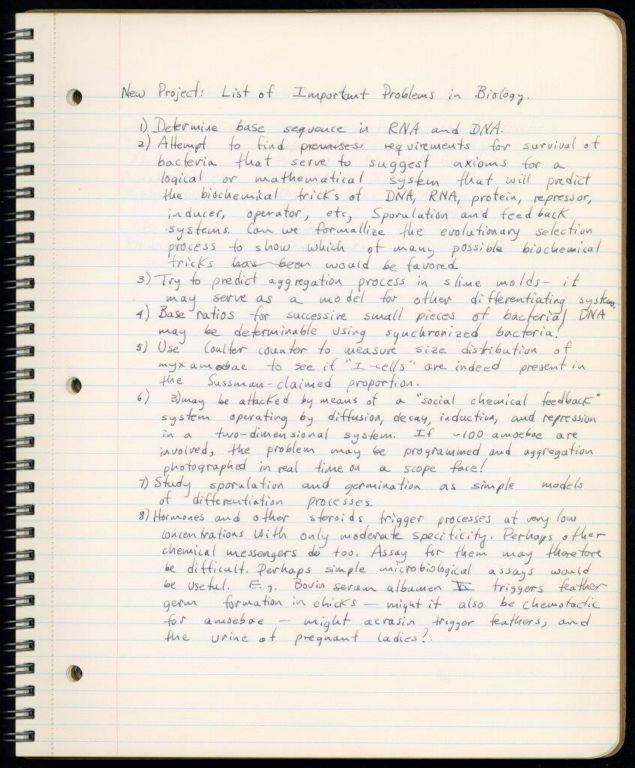 New Project: List of Important Problems in Biology.
1) Determine base sequence in RNA and DNA.
2) Attempt to find premises requirements for survival of
bacteria that serve to suggest axioms for a
logical or mathematical system that will predict
the biochemical tricks of DNA, RNA, protein, repressor,
inducer, operator, etc, Sporulation and feedback
systems. Can we formallize the evolutionary selection
process to show which of many possible biochemical
tricks has been would be favored
3) Try to predict aggregation process in slime molds - it
may serve as a model for other differentiating system.
4) Base ratios for successive small pieces of bacterial DNA
may be determinable using synchronized bacteria!
5) Use Coulter counter to measure size distribution of
myxamoebae to see if "I-cells" are indeed present in
the Sussman-claimed proportion.
6) 3) may be attacked by means of a "social chemical feedback"
system operating by diffusion, decay, induction, and repression
in a two-dimensional system. If ~100 amoebae are
involved, the problem may be programmed and aggregation
photographed in real time on a scope face!
7) Study sporulation and germination as simple models
of differentiation processes.
8) Hormones and other steroids trigger processes at very low
concentrations with only moderate specificity. Perhaps other
chemical messengers do too. Assay for them may therefore
be difficult. Perhaps simple microbiological assays would
be useful. E.g. Bovin serum albumen triggers feather
germ formation in chicks - might it also be chemotactic
for amoebae - might acrasin trigger feathers, and
the urine of pregnant ladies?.